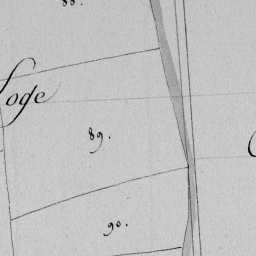 88.
Loge
89.
90.